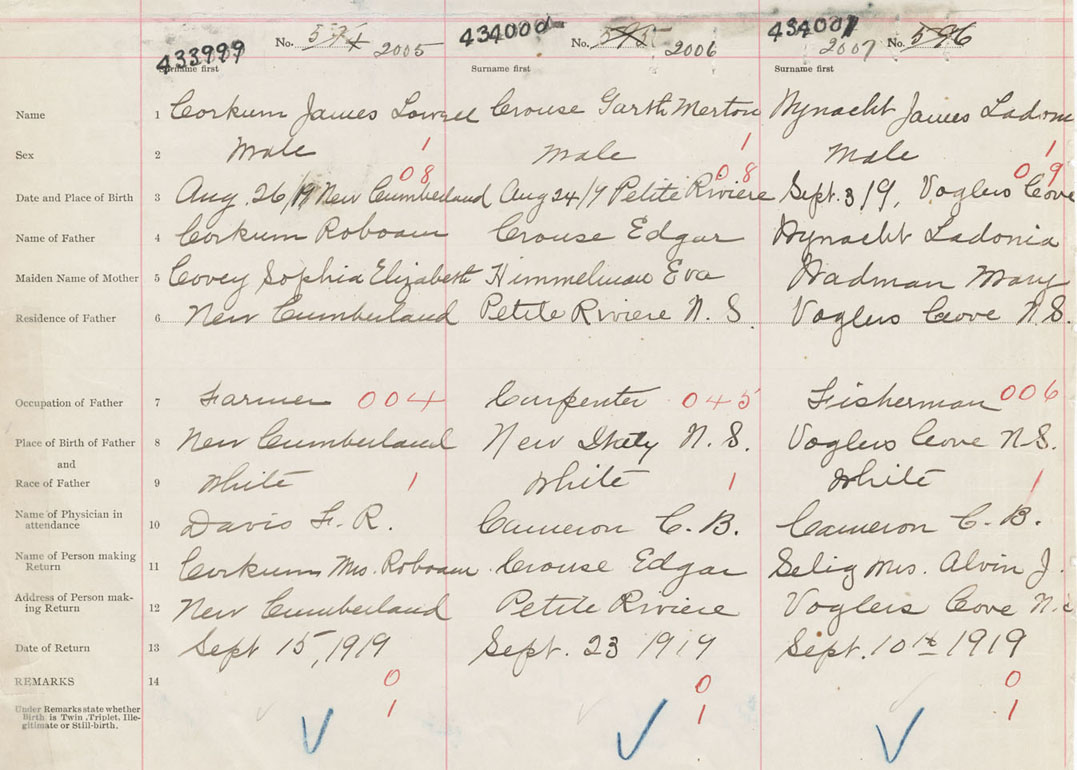 433999 No. 594 2005 434000 No. 595 2006 434001 2007 No. 596
Surname first Surname first Surname first
Name 1 Corkum James Lowell Crouse Garth Merton Wynacht James Ladonia
Sex 2 Male 1 Male 1 Male 1
08 08 09
Date and Place of Birth 3 Aug. 26/19 New Cumberland Aug 24/9 Petite Riviere Sept. 3/9, Voglers Cove
Name of Father 4 Corkum Roboam Crouse Edgar Wynacht Ladonia
Maiden Name of Mother 5 Covey Sophia Elizabeth Himmelman Eva Wadman Mary
Residence of Father 6 New Cumberland Petite Riviere N. S. Voglers Cove N.S.
Occupation of Father 7 Farmer 004 Carpenter 045 Fisherman 006
Place of Birth of Father 8 New Cumberland New Italy N. S. Voglers Cove N.S.
and
Race of Father 9 White 1 White 1 White 1
Name of Physician in
attendance 10 Davis F. R. Cameron C. B. Cameron C. B.
Name of Person making
Return 11 Corkum Mrs. Roboam Crouse Edgar Selig Mrs. Alvin J.
Address of Person mak-
ing Return 12 New Cumberland Petite Riviere Voglers Cove N.S
Date of Return 13 Sept 15, 1919 Sept. 23 1919 Sept. 10th 1919
REMARKS 14 0 0 0
Under Remarks state whether 1 1 1
Birth is Twin, Triplet, Ille-
gitimate or Still-birth.